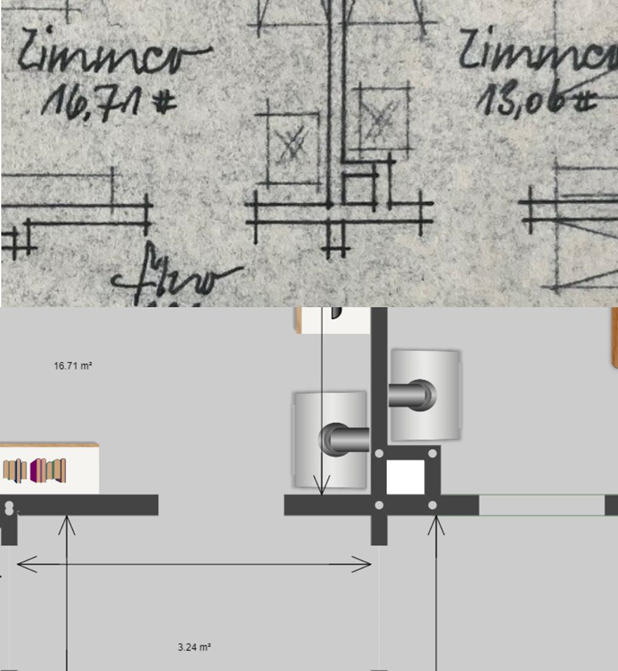 Zimmer
16,71 #
Zimmer
13,06 #
Flur
16.71 m²
3.24 m²